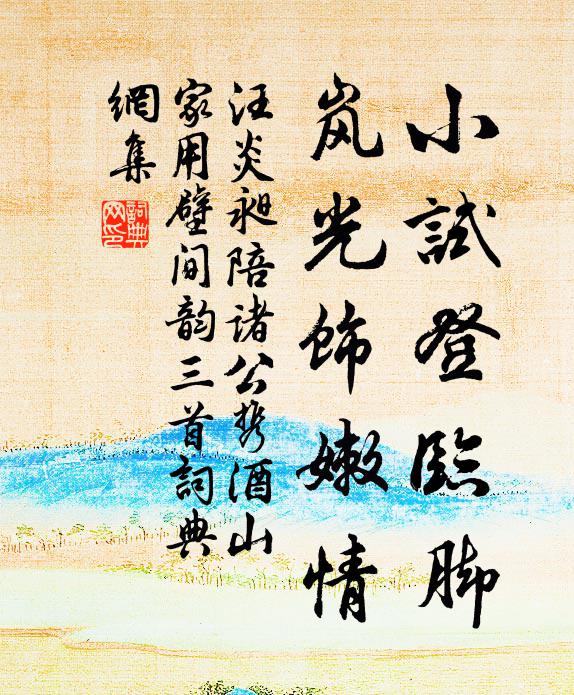 小試登臨脚
岚光飾嫩情
汪炎昶陪诸公携酒山
家用壁间韵三首詞典
網集
詞典網印